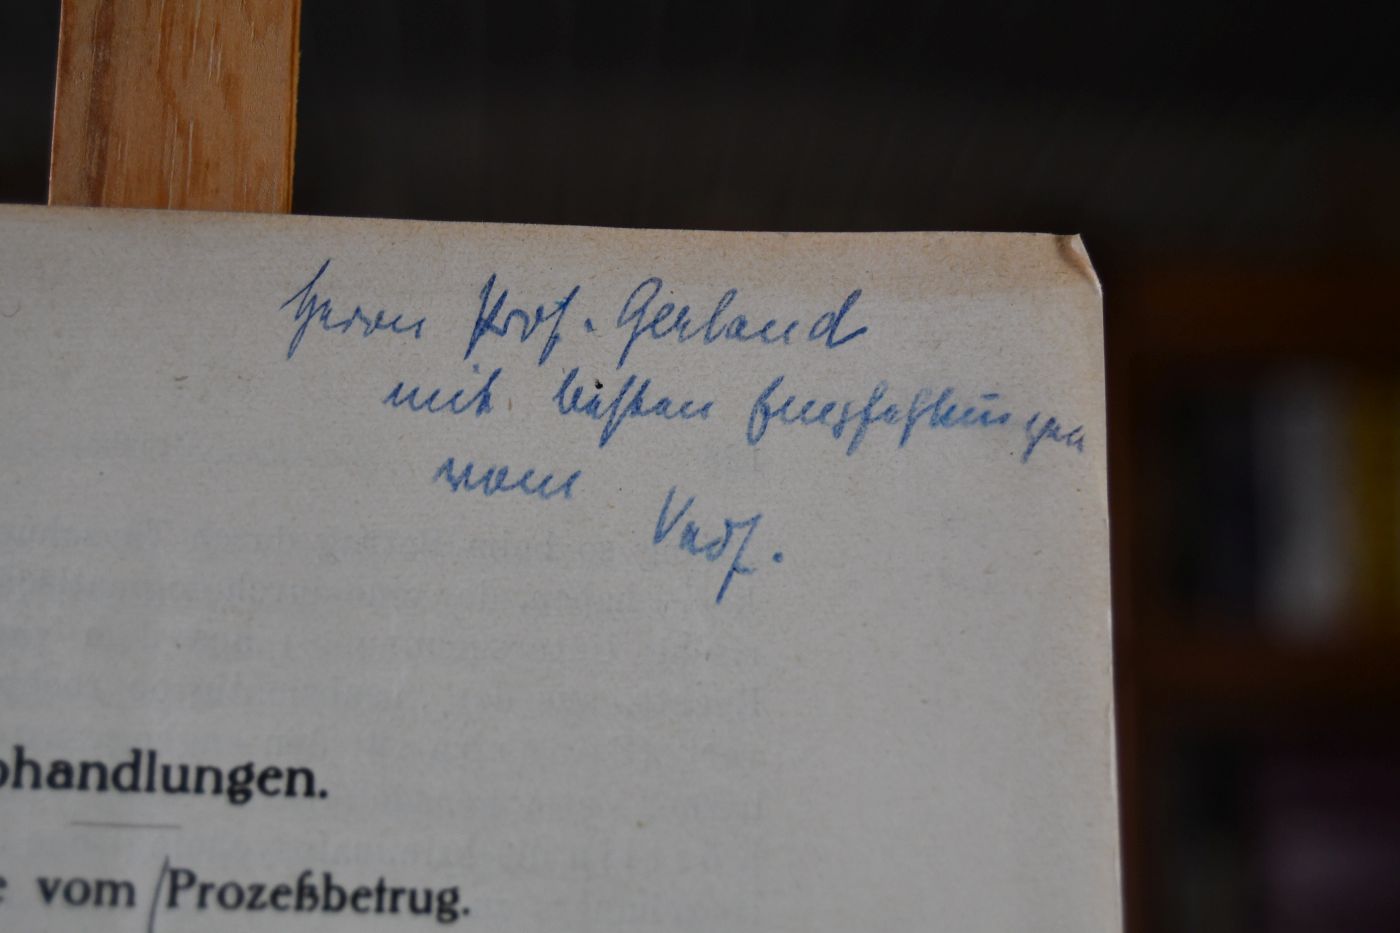 Herrn Prof. Gerland
mit besten Empfehlungen
vom Verf.
bhandlungen.
e vom Prozeßbetrug.